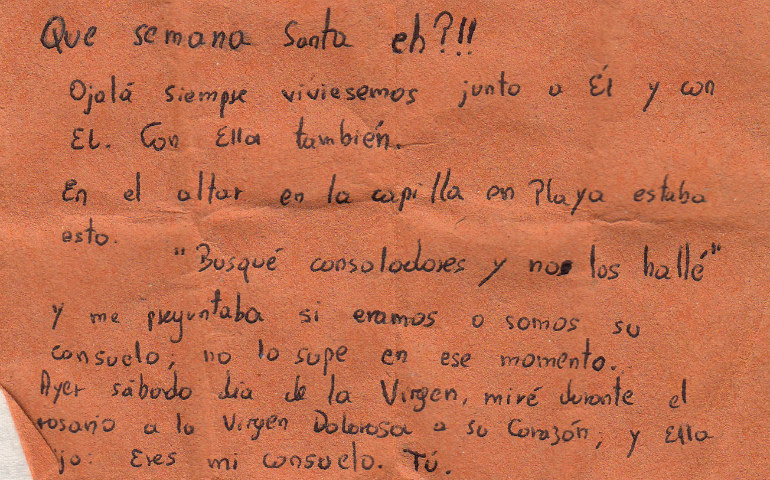 Que semana Santa eh?!!
Ojalá siempre viviesemos junto a Él y con
EL. Con Ella también.
En el altar en la capilla en Playa estaba
esto.
"Busqué consoladores y no los hallé"
y me preguntaba si eramos o somos su
consuelo, no lo supe en ese momento.
Ayer sábado día de la Virgen, miré durante el
rosario a la Virgen Dolorosa a su Corazón, y Ella
jo: Eres mi consuelo. Tú.